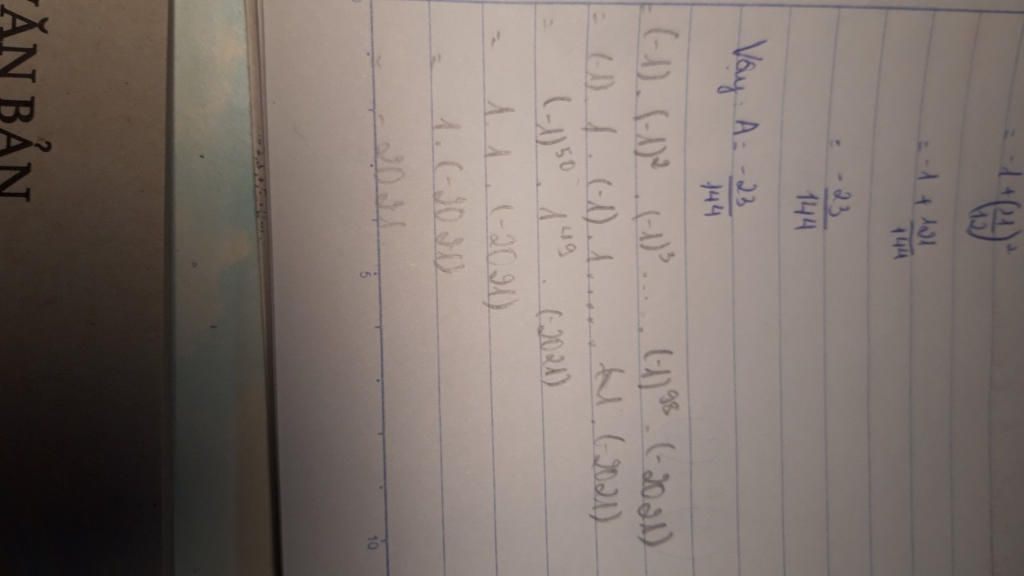 = -1 + (11/12)²
= -1 + 121/144
= -23/144
Vậy. A = -23/144
= (-1). (-1)² . (-1)³ ..... (-1)⁹⁸ . (-2021)
= (-1) 1 . (-1). 1 ..... 1 . (-2021)
= (-1)⁵⁰ . 1⁴⁹ . (-2021)
= 1 . 1 . (-2021)
= 1 . (-2021)
= - 2021
5
10
VĂN BẢN